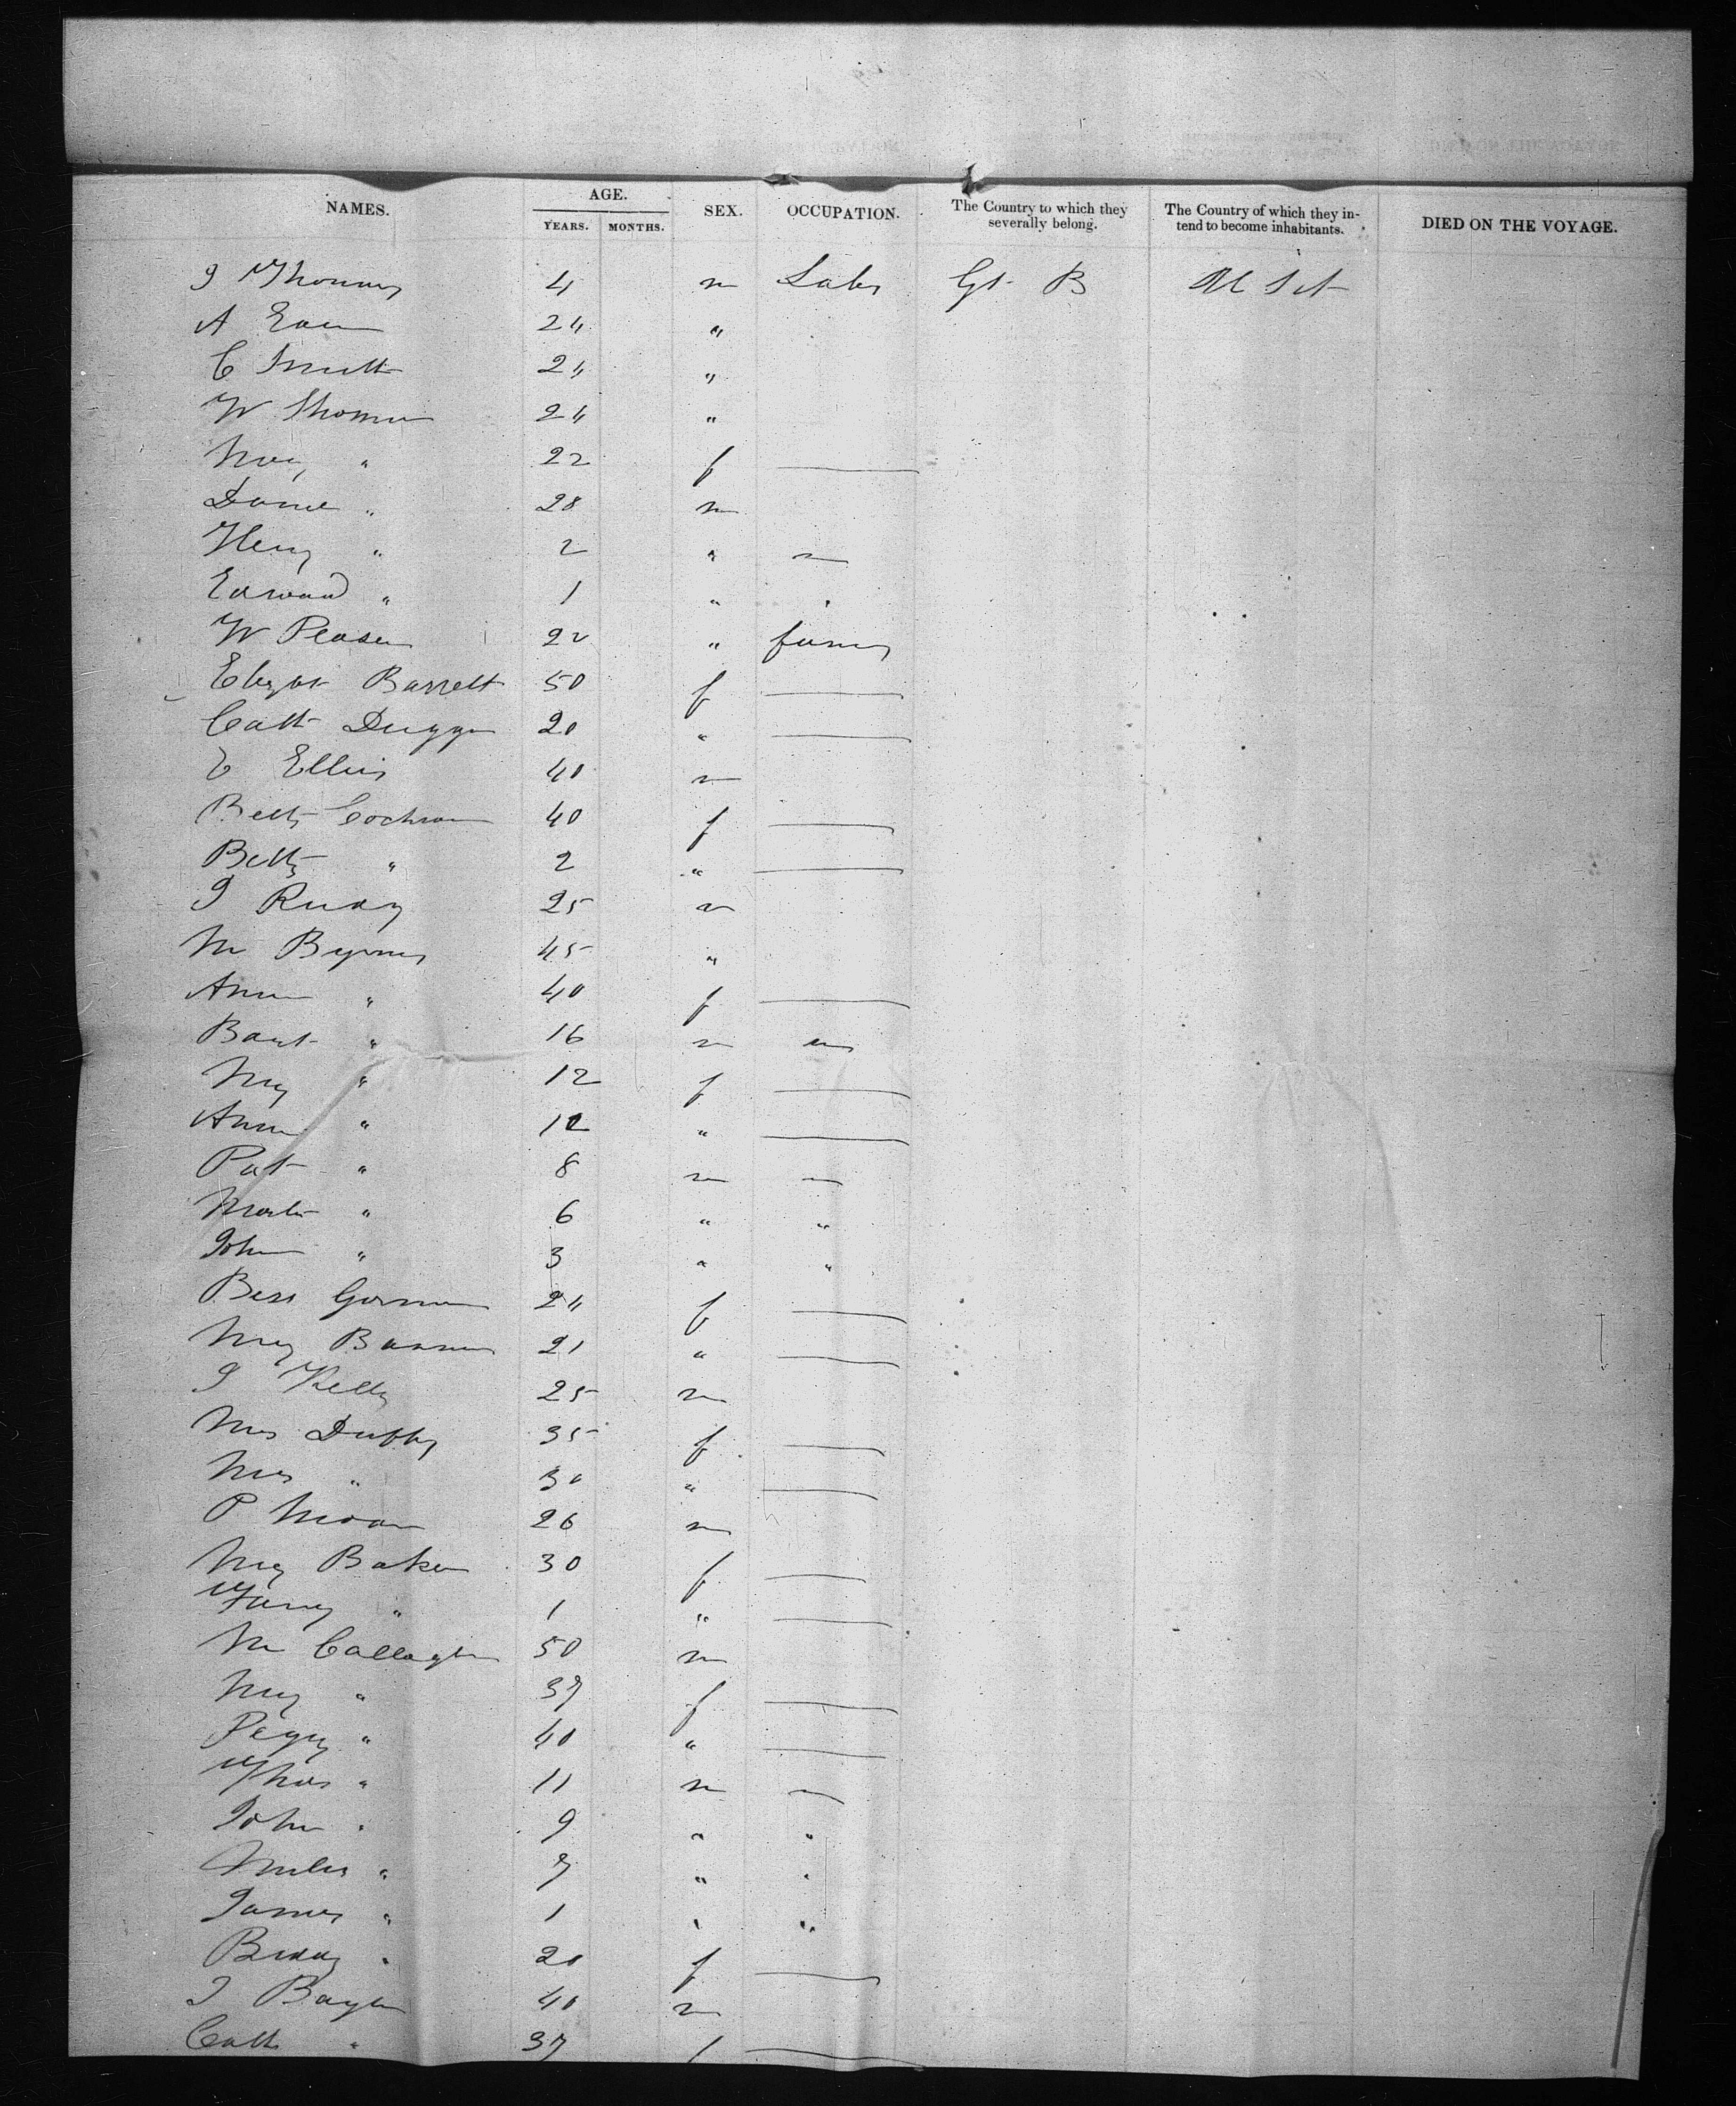 NAMES. AGE. SEX. OCCUPATION. The Country to which they severally belong. The Country of which they intend to become inhabitants. DIED ON THE VOYAGE.
YEARS. MONTHS.
4 m Labr Gt. B
A 24 "
C Smith 24 "
W Thomas 24 "
" 22 f
Daniel " 28 m
Henry " 2 "
Edward " 1 "
W 22 " farmer
Barrett 50 f
Cath Duggan 20 "
E Ellis 40 m
Betty Cochran 40 f
Betty " 2 "
J Ruddy 25 m
M Byrnes 45 "
Ann " 40 f
" 16 m
My " 12 f
Ann " 12 "
Pat " 8 m
Martin " 6 " "
John " 3 " "
Bess Gorman 24 f
My 21 "
J Kelly 25 m
Mrs Duffy 35 f
" 30 "
P Moran 26 m
My Baker 30 f
" 1 "
M Callaghan 50 m
My " 37 f
Peggy " 40 "
Thos " 11 m
John " 9 " "
Miles " 7 " "
James " 1 " "
Biddy " 20 f
40 m
Cath " 37 f